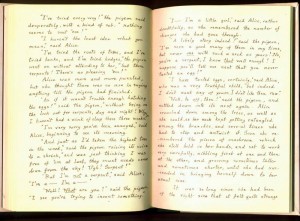 "I've tried every way!" the pigeon said
desperately, with a kind of sob: "nothing
seems to suit 'em!"
"I haven't the least idea what you
mean," said Alice.
"I've tried the roots of trees, and I've
tried banks, and I've tried hedges," the pigeon
went on without attending to her, "but them
serpents! There's no pleasing 'em!"
Alice was more and more puzzled,
but she thought there was no use in saying
anything till the pigeon had finished.
"as if it wasn't trouble enough hatching
the eggs!" said the pigeon, "without being on
the look out for serpents, day and night!
I haven't had a wink of sleep these three weeks!"
"I'm very sorry you've been annoyed," said
Alice, beginning to see its meaning.
"And just as I'd taken the highest tree
in the wood," said the pigeon, raising its voice
to a shriek, "and was just thinking I was
free of 'em at last, they must needs come
down from the sky! Ugh! Serpent!"
"But I'm not a serpent," said Alice,
"I'm a — I'm a —"
"Well! What are you?" said the pigeon,
"I see you're trying to invent something."
"I — I'm a little girl," said Alice, rather
doubtfully, as she remembered the number of
changes she had gone through.
"A likely story indeed!" said the pigeon,
"I've seen a good many of them in my time,
but never one with such a neck as yours! No,
you're a serpent, I know that well enough! I
suppose you'll tell me next that you never
tasted an egg!"
"I have tasted eggs, certainly," said Alice,
who was a very truthful child, "but indeed
I do
"Well, be off, then!" said the pigeon, and
settled down into its nest again. Alice
crouched down among the trees, as well as
she could, as her neck kept getting entangled
among the branches, and several times she
had to stop and untwist it. Soon she
remembered the pieces of mushroom which
she still held in her hands, and set to work
very carefully, nibbling first at one and then
at the other, and growing sometimes taller
and sometimes shorter, until she had suc-
ceeded in bringing herself down to her
usual size.
It was so long since she had been
of the right size that it felt quite strange